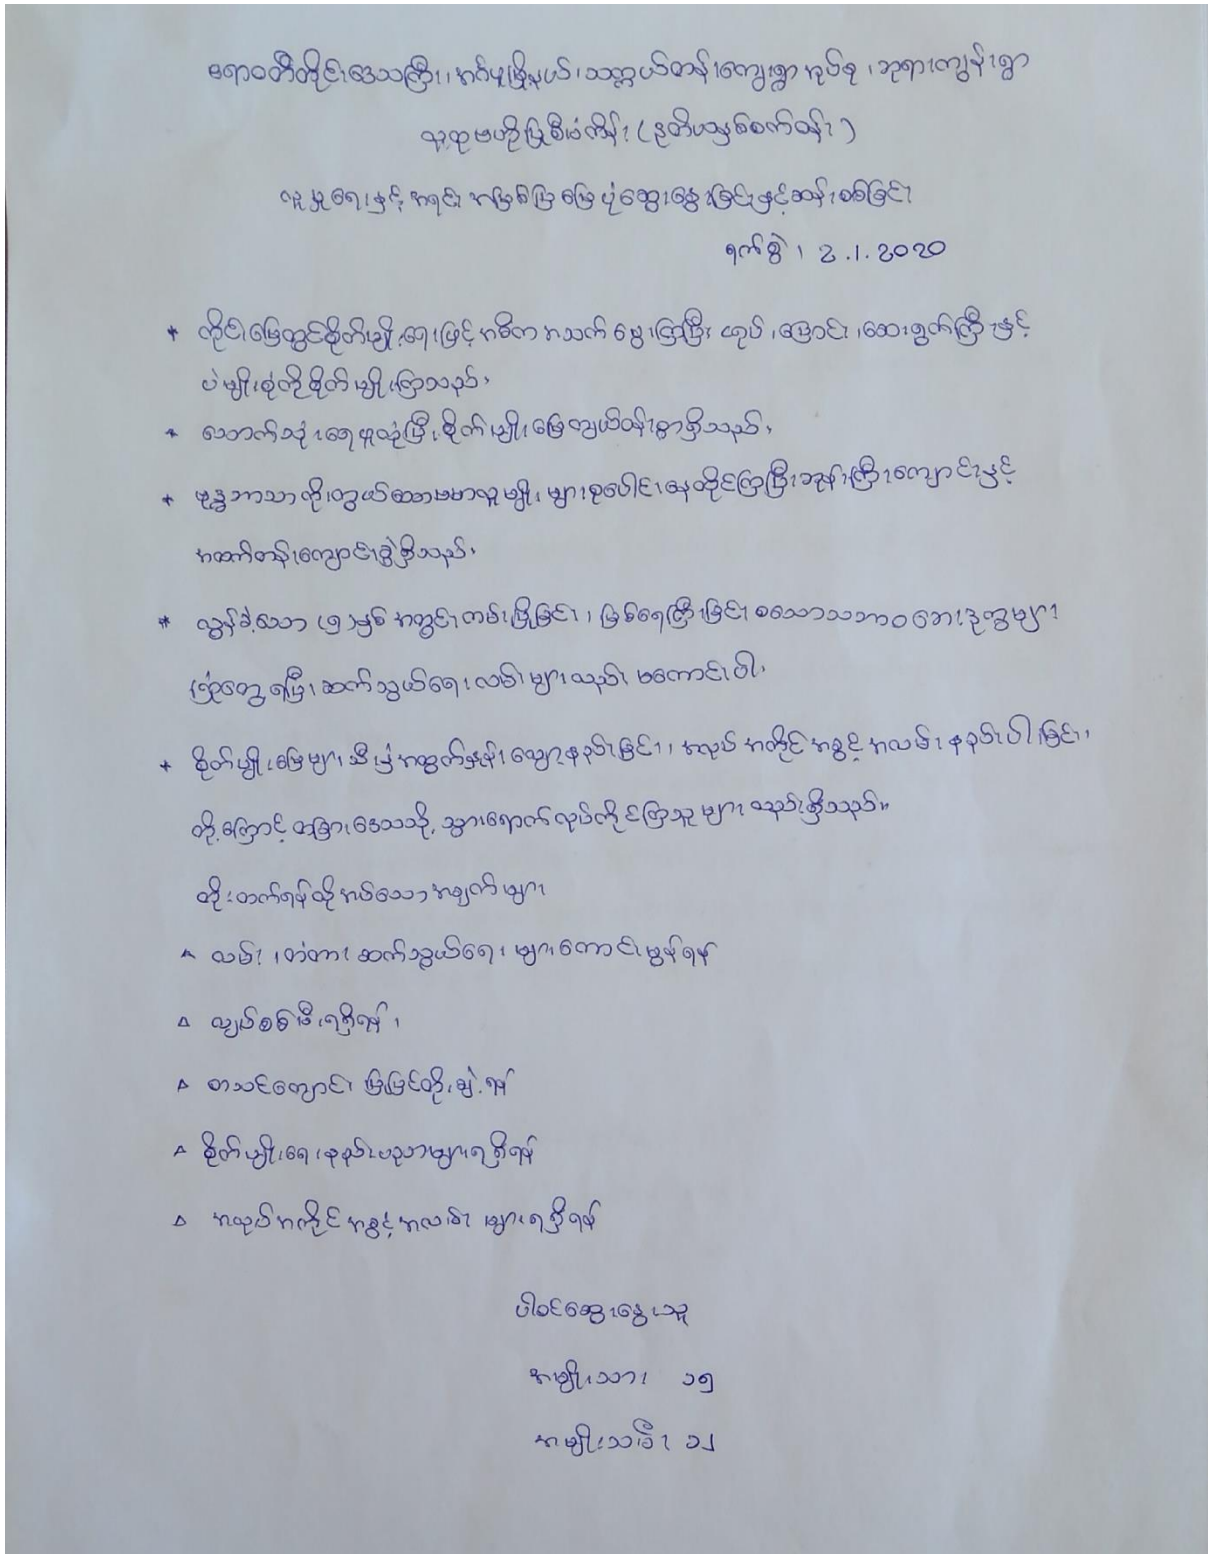 ဧရာဝတီတိုင်းဒေသကြီး၊ အင်္ဂပူမြို့နယ်၊ သက္ကယ်တန်းကျေးရွာအုပ်စု၊ ဘုရားကျွန်းရွာ
လူထုဗဟိုပြုစီမံကိန်း (ဒုတိယနှစ်စက်ဝန်း)
လူမှုရေးနှင့် အရင်းအမြစ်ပြမြေပုံဆွေးနွေးခြင်းနှင့်ဆန်းစစ်ခြင်း
ရက်စွဲ၊ 2.1.2020
* ကိုင်းမြေတွင်စိုက်ပျိုးရေးဖြင့် အဓိက အသက်မွေးကြပြီး ဟုပ်၊ ပြောင်း၊ ဆေးရွက်ကြီးနှင့်
ပဲမျိုးစုံကိုစိုက်ပျိုးကြသည်၊
* သောက်သုံးရေလုံပြီးစိုက်ပျိုးမြေကျယ်ဝန်းစွာရှိသည်၊
* ဗုဒ္ဓဘာသာကိုးကွယ်သောဗမာလူမျိုးများစုပေါင်းနေထိုင်ကြပြီးဘုန်းကြီးကျောင်းနှင့်
အထက်တန်းကျောင်းခွဲရှိသည်၊
* လွန်ခဲ့သော (၅)နှစ်အတွင်းကမ်းပြိုခြင်း၊ မြစ်ရေကြီးခြင်းစသောသဘာဝဘေးဒုက္ခများ
ကြုံတွေ့ရပြီး ဆက်သွယ်ရေးလမ်းများလည်း မကောင်းပါ၊
* စိုက်ပျိုးမြေများသီးနှံအထွက်နှုန်းလျော့နည်းခြင်း၊ အလုပ်အကိုင်အခွင့်အလမ်းနည်းပါးခြင်း၊
တို့ကြောင့် အခြားဒေသသို့ သွားရောက်လုပ်ကိုင်ကြသူများလည်းရှိသည်။
တိုးတက်ရန်လိုအပ်သောအချက်များ
△ လမ်း၊ တံတား ဆက်သွယ်ရေးများကောင်းမွန်ရန်
△ လျှပ်စစ်မီးရရှိရန်၊
△ စာသင်ကျောင်း ပြုပြင်တိုးချဲ့ရန်
△ စိုက်ပျိုးရေးနည်းပညာများရရှိရန်
△ အလုပ်အကိုင်အခွင့်အလမ်းများရရှိရန်
ပါဝင်ဆွေးနွေးသူ
အမျိုးသား ၁၅
အမျိုးသမီး ၁၂